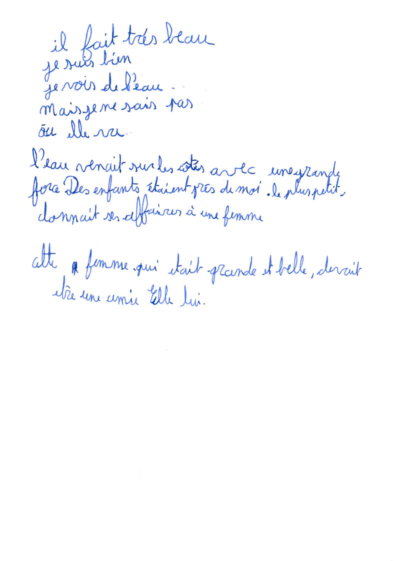 il fait trés beau
je suis bien
je vois de l'eau..
mais je ne sais pas
ou elle va
l'eau venait sur les côtés avec une grande
force Des enfants étaient près de moi. le plus petit,
donnait ses affaires à une femme
cette femme qui était grande et belle, devait
etre une amie Elle lui.